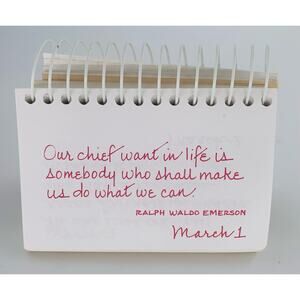 Our chief want in life is
somebody who shall make
us do what we can.
RALPH WALDO EMERSON
March 1